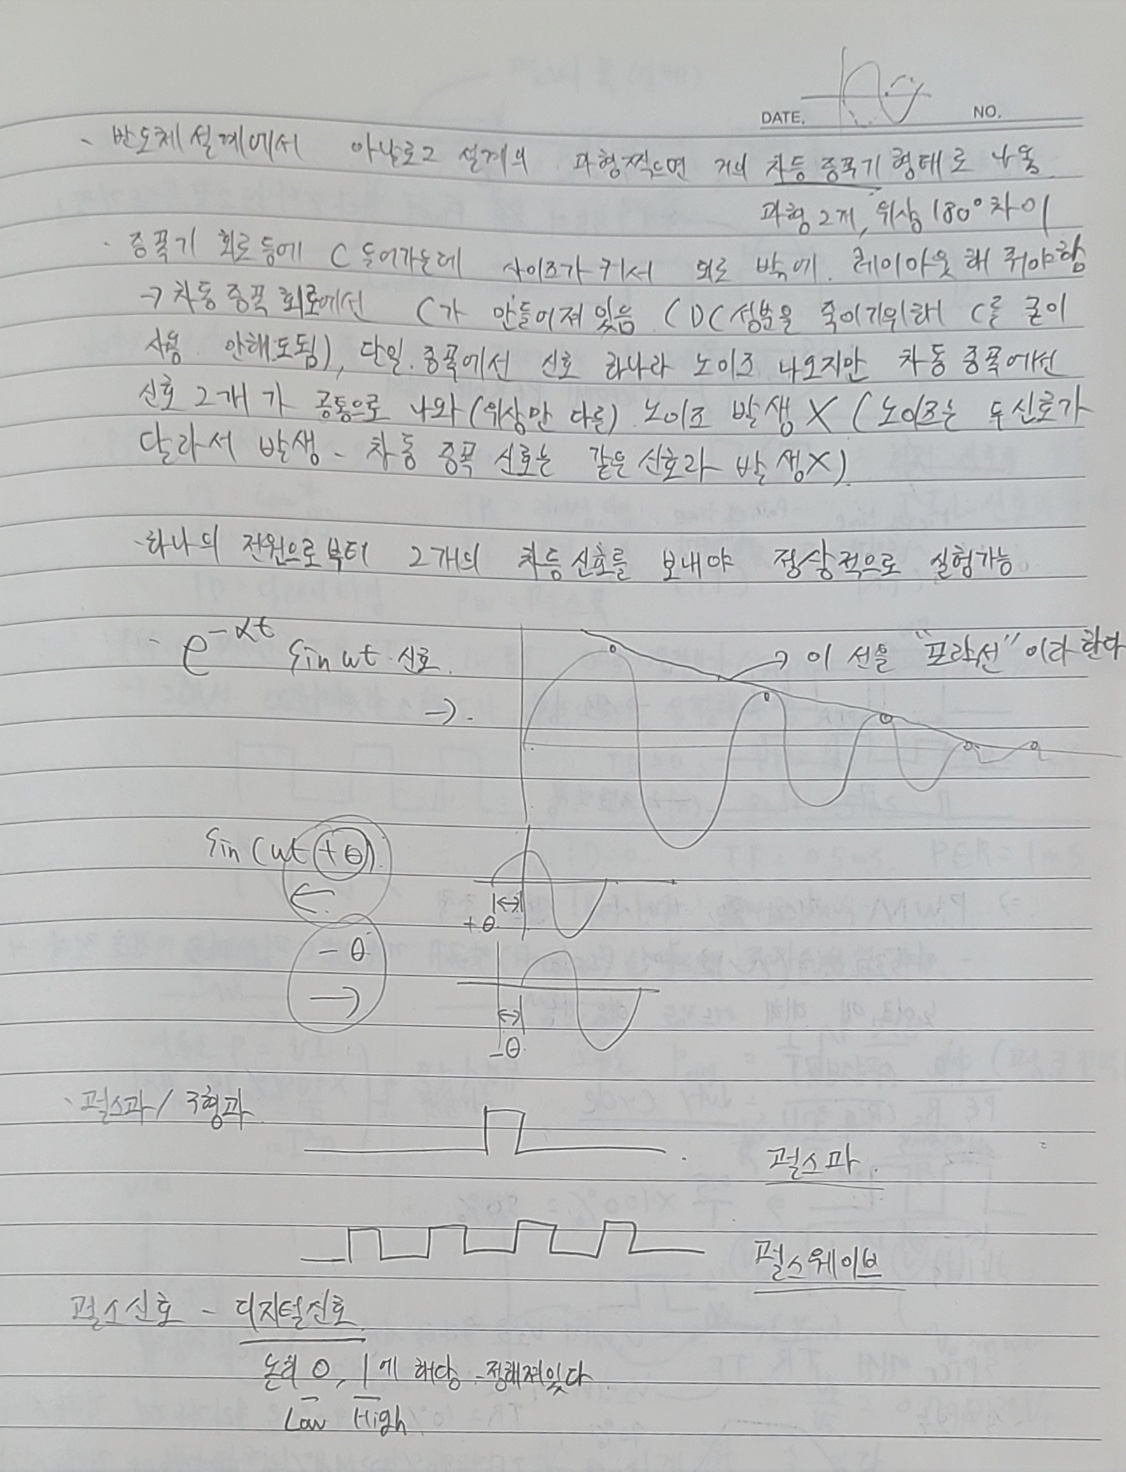 DATE. NO.
- 반도체설계에서 아날로그 설계의 파형찍으면 거의 차동증폭기 형태로 나옴
파형 2개, 위상 180° 차이
· 증폭기 회로등에 C 들어가는데 사이즈가 커서 외로 밖에. 레이아웃 해 줘야함
→ 차동 증폭 회로에선 C가 만들어져 있음. (DC성분을 죽이기위해 C를 굳이
사용 안해도됨), 단일.증폭에선 신호 하나라 노이즈 나오지만 차동 증폭에선
신호 2개가 공통으로 나와 (위상만 다름) 노이즈 발생 X (노이즈는 두신호가
달라서 발생 - 차동 증폭 신호는 같은신호라 발생X)
·하나의 전원으로부터 2개의 차동신호를 보내야 정상적으로 실험가능
- e^-αt sin wt 신호.
→ 이 선을 "포락선"이라 한다
→.
sin(wt+θ)
←
+θ
-θ
→
-θ
· 펄스파/구형파
펄스파.
펄스웨이브
펄스신호 - 디지털신호
논리 0, 1에 해당 - 정해져있다
Low High